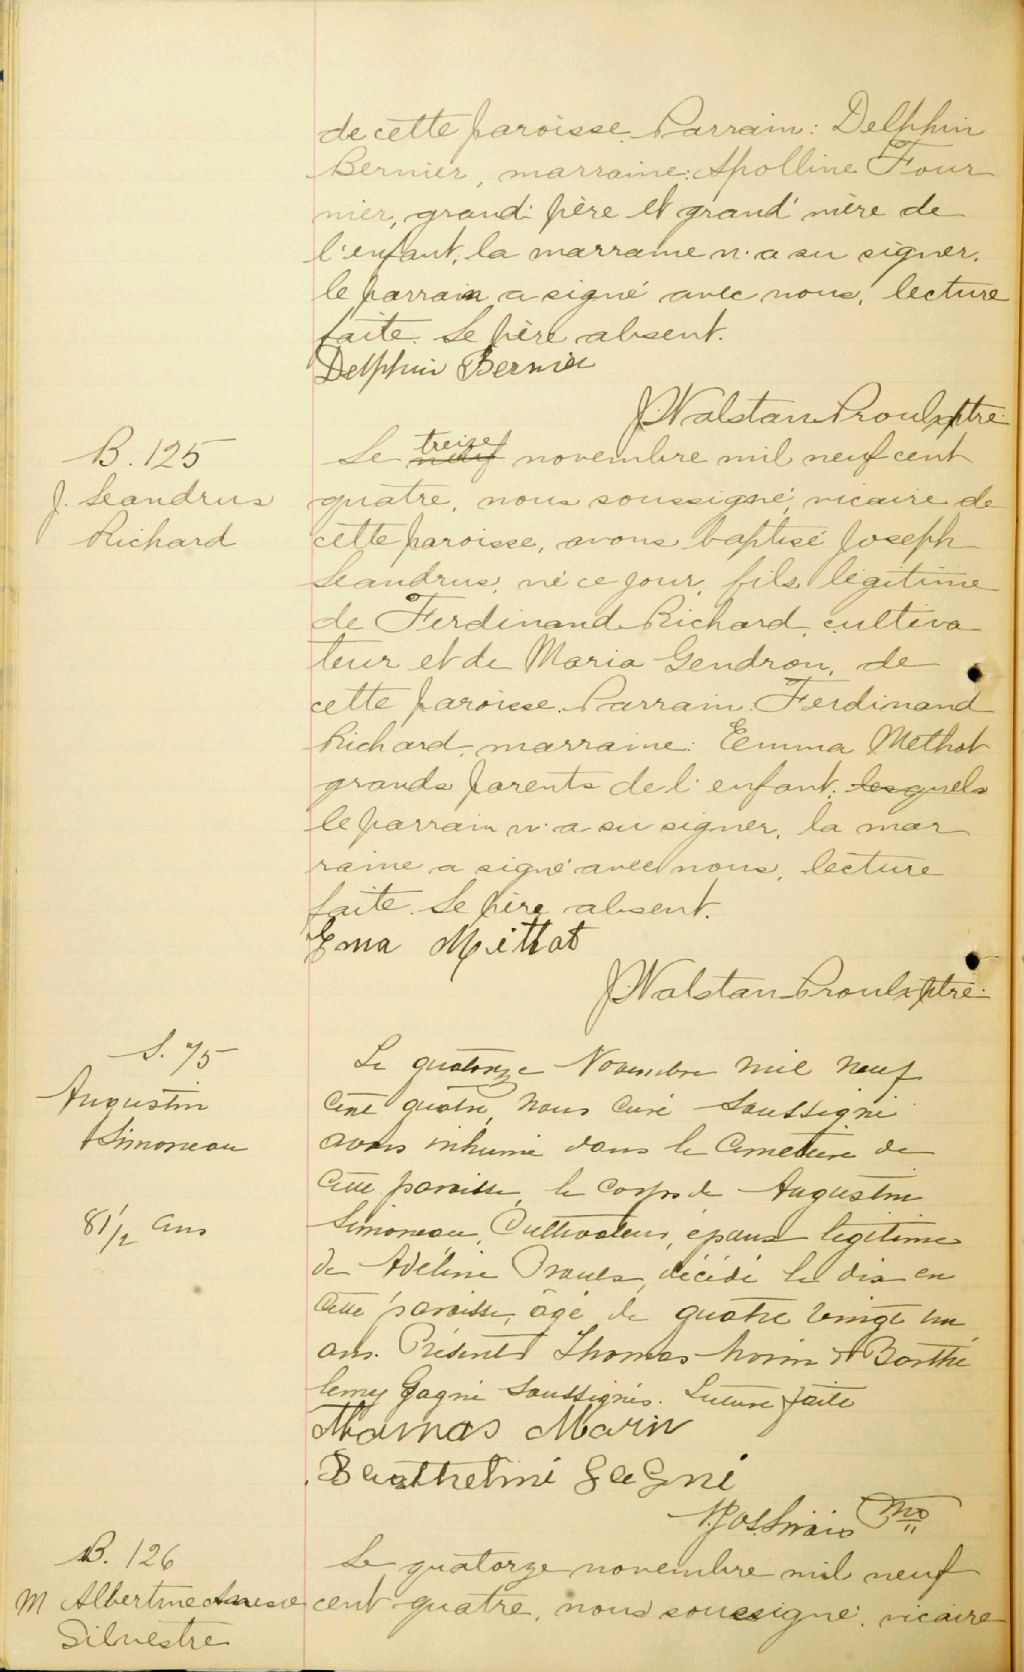 de cette paroisse. Parrain: Delphin
Bernier, marraine: Apolline Four
nier, grand-père et grand'mère de
l'enfant; la marraine n'a su signer,
le parrain a signé avec nous, lecture
faite. Le père absent.
Delphin Bernier
J. Walstan Proulx ptre.
B. 125
J. Leandrus
Richard
Le neuf treize novembre mil neuf cent
quatre, nous soussigné, vicaire de
cette paroisse, avons baptisé Joseph
Leandrus, né ce jour, fils légitime
de Ferdinand Richard, cultiva
teur et de Maria Gendron, de
cette paroisse. Parrain: Ferdinand
Richard, marraine: Emma Methot
grands parents de l'enfant; lesquels
le parrain n'a su signer, la mar
raine a signé avec nous, lecture
faite. Le père absent.
Ema Méthot
J. Walstan Proulx ptre.
S. 75
Augustin
Simoneau
81 1/2 ans
Le quatorze Novembre mil neuf
cent quatre, nous curé soussigné
avons inhumé dans le cimetière de
cette paroisse, le corps de Augustin
Simoneau, Cultivateur, époux légitime
de Adéline Proulx, décédé le dix en
cette paroisse, âgé de quatre vingt un
ans. Présents Thomas Morin et Barthé
lemy Gagné soussignés. Lecture faite
Thomas Morin
Barthelmi GaGné
Ptre
B. 126
M Albertine
Silvestre
Le quatorze novembre mil neuf
cent quatre, nous soussigné, vicaire